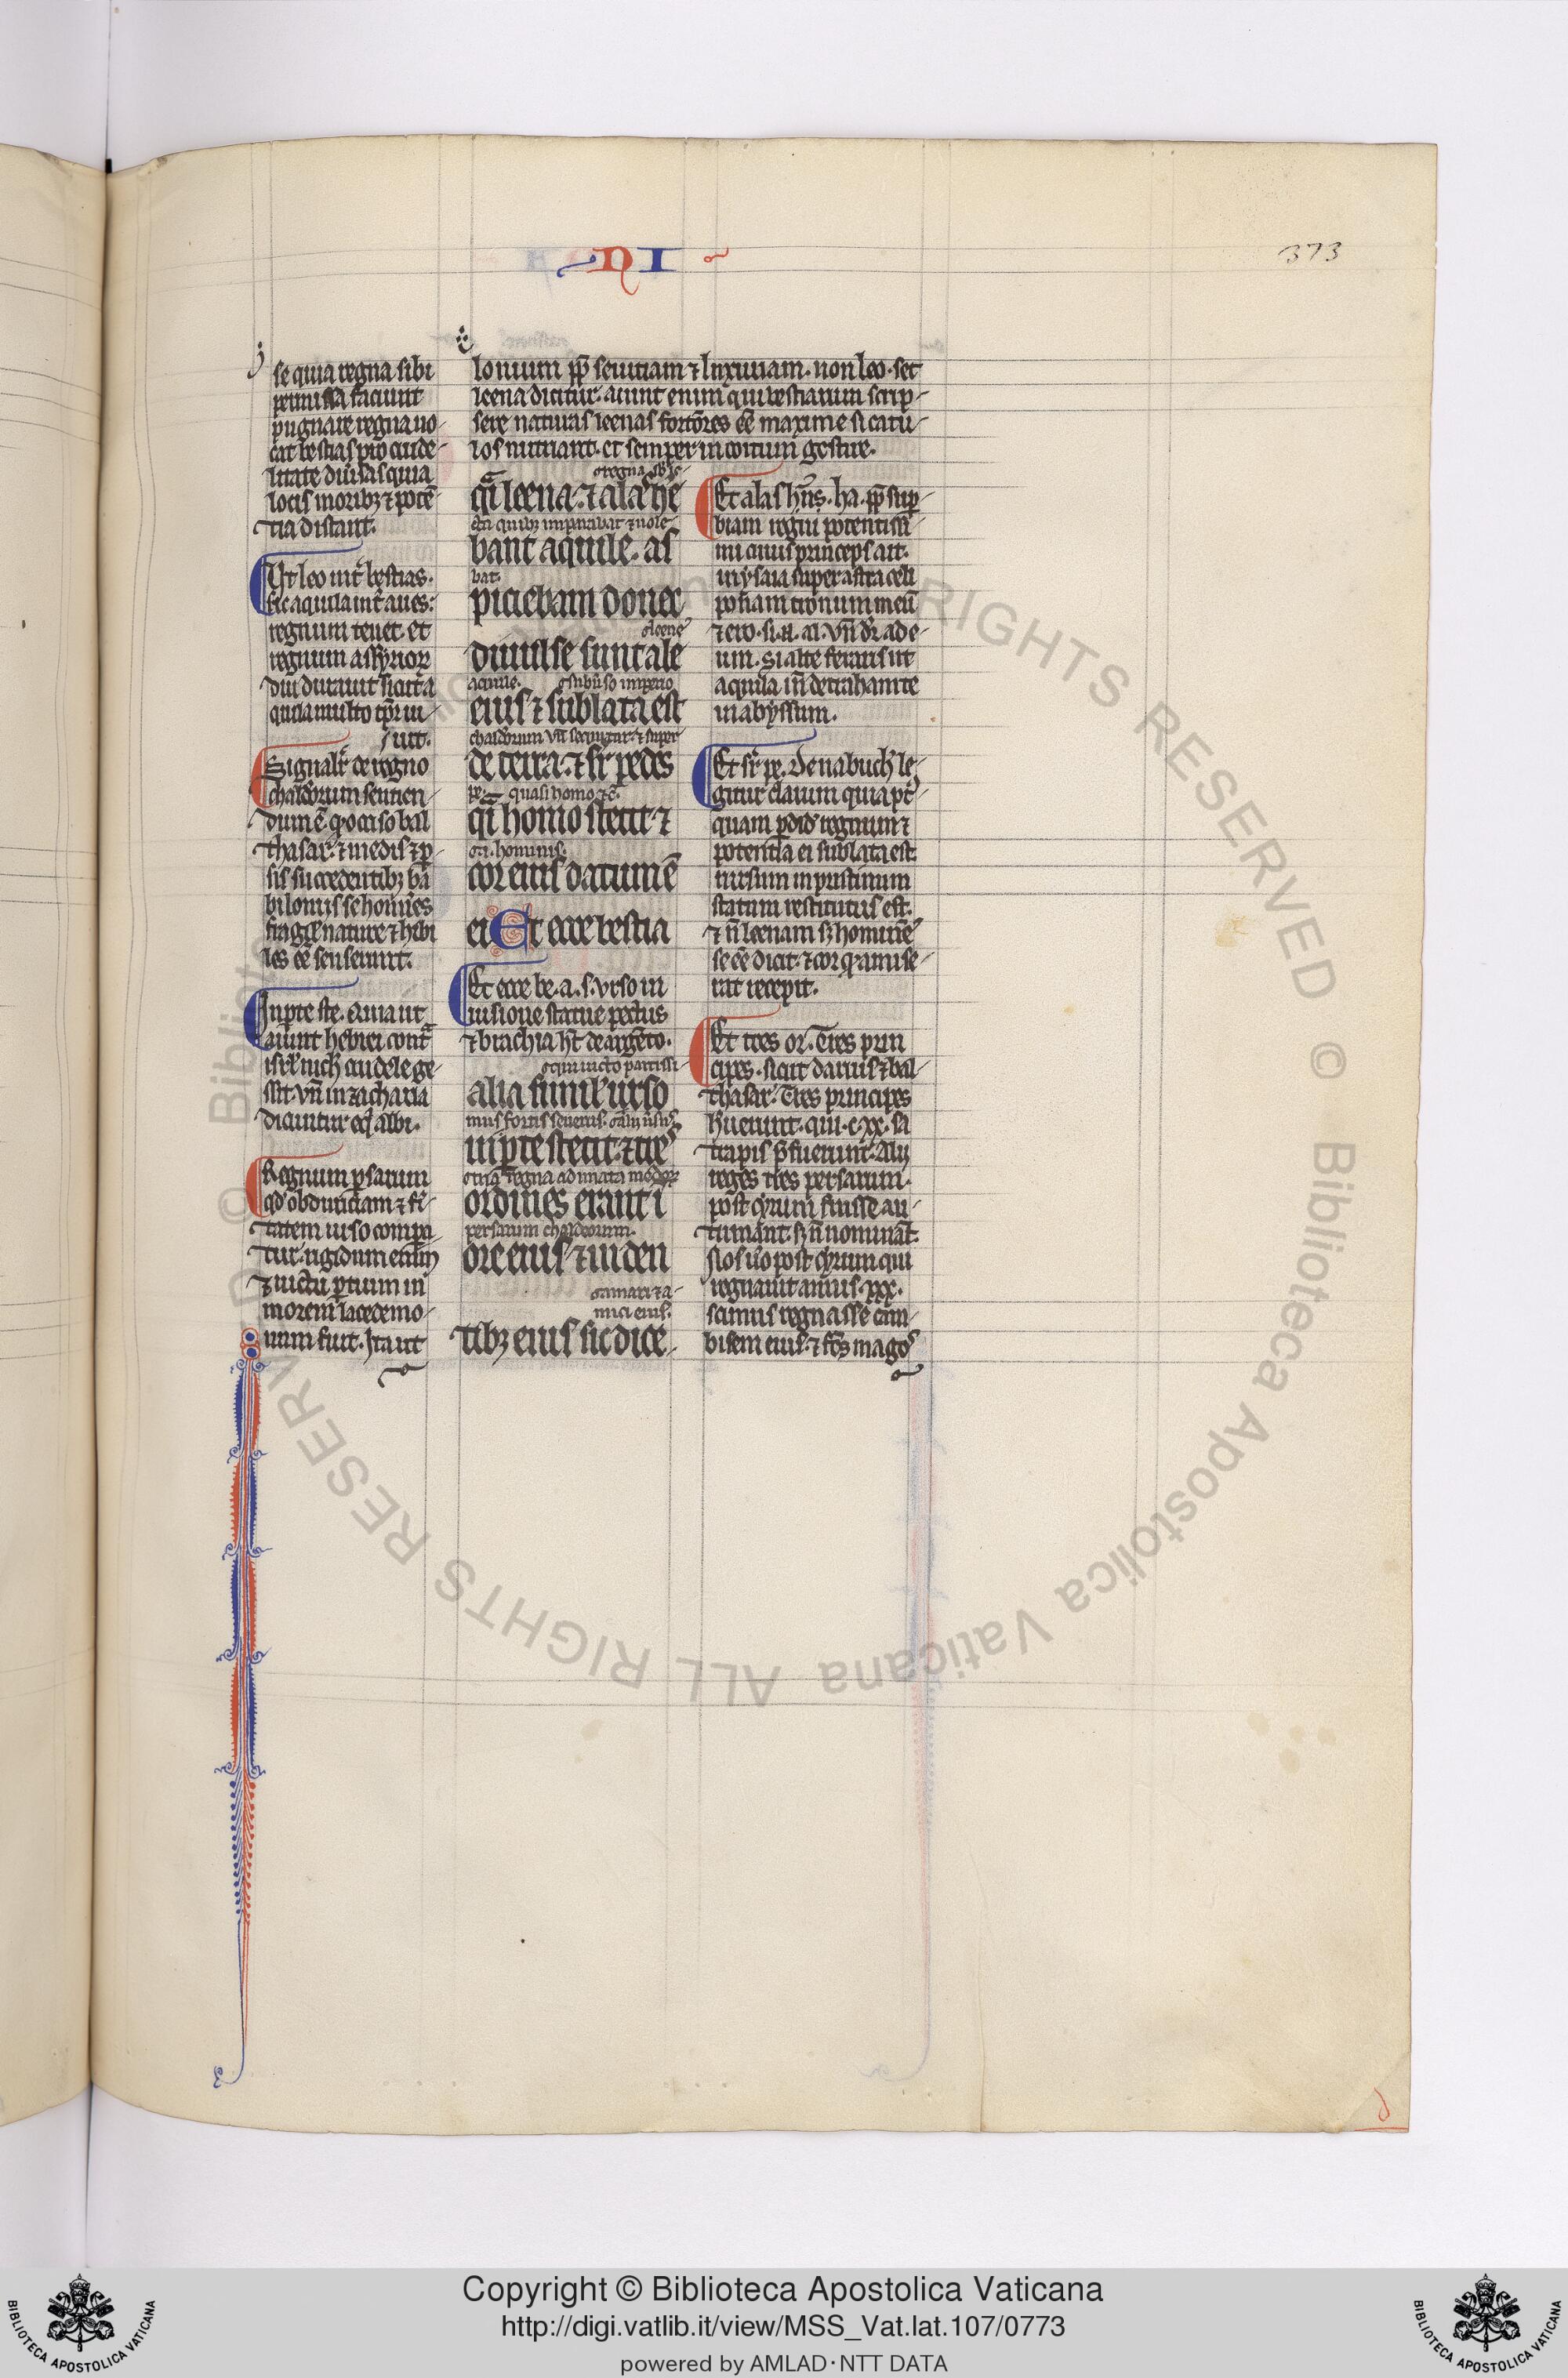 NI
373
se quia regna sibi
permissa faciunt
pugnare regna uo
cat bestias pro crude
litate diuisas quia
locis moribꝫ ⁊ potē
tia distant.
Vt leo int̄ bestias.
sic aquila int̄ aues:
regnum tenet. et
regnum assyrioꝝ
diu durauit sicut a
quila multo tp̄r ui
uit.
Signalr̄ de regno
chaldeorum sentien
dum ē. qꝰ occiso bal
thasar. ⁊ medis ⁊ ꝑ
sis succedentibꝫ ba
bilonius se homīes
fragilē nature ⁊ hebi
les eē senserunt.
In parte ste. Quia ut
aiunt hebrei cont̄
isrl̄ nich̄ crudele ge
sit. vn̄ in zacharia
dicuntur eq̄ albi.
Regnum ꝑsarum
qd̓ ob duriciam ⁊ fi
tatem urso compa
tur. rigidum enim
⁊ uictu ꝑtium in
morem lacedemo
nium fuit. Ita ut
lonium ꝓp̄ seuitiam ⁊ luxuriam. non leo. set
leena dicitur. aiunt enim qui bestiarum scrip
sere naturas leenas fortiores eē maxime si catu
los nutriant. et semper in coitum gestire.
q̄i leena. ⁊ alas hē
bant aquile. as
bat.
piciebam donec
.i. leene
diuulse sunt ale
aquile.
eius ⁊ sublata est
de terra. ⁊ sr̄ pedes
quasi homo ⁊c̄.
q̄i homo stetit ⁊
hominis.
cor eius datum ē
ei Et ecce bestia
Et ecce be. a. s. vrso in
uisione statue pectus
⁊ brachia ht̄ de argēto.
alia simil̓ urso
in ꝑte stetit. ⁊ tres
ordines erant i
persarum chaldeorum.
ore eius ⁊ in den
mici eius.
tibꝫ eius sic dice
Et alas hn̄s. ha. ꝓp̄ sup̄
biam regni potentissi
mi cuius princeps ait.
in ysaia super astra celi
ponam tronum meū
⁊ ero. si. al. vn̄ dr̄ ad e
um. Si alte feraris ut
aquila in̄ detraham te
in abyssum.
Et sr̄ pe. De nabuch̓ le
gitur clarum quia pt̓
quam ꝑdid̓ regnum ⁊
potentia ei sublata est.
rursum in pristinum
statum restitutus est.
⁊ n̄ leenam sꝫ hominē
se eē dicit. ⁊ cor qd̓ amise
rat recepit.
Et tres or. Tres prin
cipes. sicut darius ⁊ bal
thasar. Tres principes
hūerunt. qui .c.xx. sa
trapis p̄fuerunt. Alij
reges tres persarum.
post cyrum fuisse au
tumant. sꝫ n̄ nominat̄.
Nos ūo post cyrum qui
regnauit annis .xxx.
scimus regnasse cam
bisem eius. ⁊ frēs magos
Copyright © Biblioteca Apostolica Vaticana
http://digi.vatlib.it/view/MSS_Vat.lat.107/0773
powered by AMLAD·NTT DATA
BIBLIOTECA APOSTOLICA VATICANA
BIBLIOTECA APOSTOLICA VATICANA
© Biblioteca Apostolica Vaticana ALL RIGHTS RESERVED